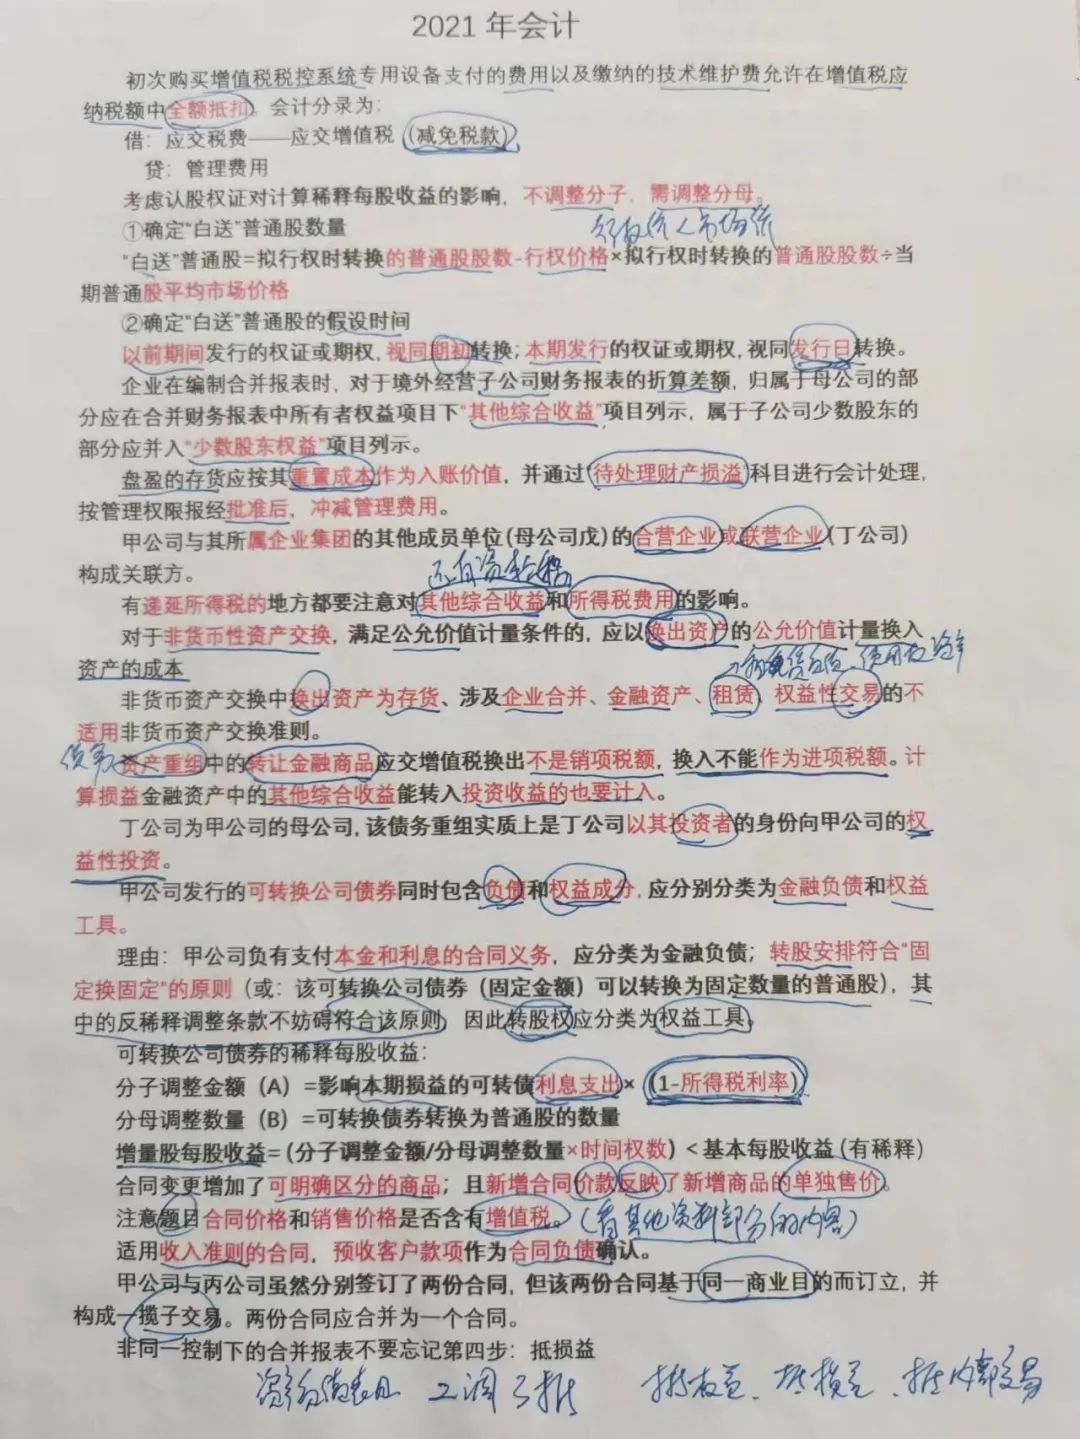 2021 年会计
初次购买增值税税控系统专用设备支付的费用以及缴纳的技术维护费允许在增值税应
纳税额中全额抵扣。会计分录为：
借：应交税费——应交增值税（减免税款）
贷：管理费用
考虑认股权证对计算稀释每股收益的影响，不调整分子，需调整分母。
行权价＜市场价
①确定“白送”普通股数量
“白送”普通股=拟行权时转换的普通股股数-行权价格×拟行权时转换的普通股股数÷当
期普通股平均市场价格
②确定“白送”普通股的假设时间
以前期间发行的权证或期权，视同期初转换；本期发行的权证或期权，视同发行日转换。
企业在编制合并报表时，对于境外经营子公司财务报表的折算差额，归属于母公司的部
分应在合并财务报表中所有者权益项目下“其他综合收益”项目列示，属于子公司少数股东的
部分应并入“少数股东权益”项目列示。
盘盈的存货应按其重置成本作为入账价值，并通过“待处理财产损溢”科目进行会计处理，
按管理权限报经批准后，冲减管理费用。
甲公司与其所属企业集团的其他成员单位(母公司戊)的合营企业或联营企业(丁公司)
构成关联方。
还有资
有递延所得税的地方都要注意对其他综合收益和所得税费用的影响。
对于非货币性资产交换，满足公允价值计量条件的，应以换出资产的公允价值计量换入
资产的成本
使用权资产
非货币资产交换中换出资产为存货、涉及企业合并、金融资产、租赁、权益性交易的不
适用非货币资产交换准则。
债务
资产重组中的转让金融商品应交增值税换出不是销项税额，换入不能作为进项税额。计
算损益金融资产中的其他综合收益能转入投资收益的也要计入。
丁公司为甲公司的母公司,该债务重组实质上是丁公司以其投资者的身份向甲公司的权
益性投资。
甲公司发行的可转换公司债券同时包含负债和权益成分，应分别分类为金融负债和权益
工具。
理由：甲公司负有支付本金和利息的合同义务，应分类为金融负债；转股安排符合“固
定换固定”的原则（或：该可转换公司债券（固定金额）可以转换为固定数量的普通股），其
中的反稀释调整条款不妨碍符合该原则，因此转股权应分类为权益工具。
可转换公司债券的稀释每股收益：
分子调整金额（A）=影响本期损益的可转债利息支出×（1-所得税利率）
分母调整数量（B）=可转换债券转换为普通股的数量
增量股每股收益=(分子调整金额/分母调整数量×时间权数)＜基本每股收益(有稀释)
合同变更增加了可明确区分的商品；且新增合同价款反映了新增商品的单独售价。
注意题目合同价格和销售价格是否含有增值税。（看其他资料部分的内容）
适用收入准则的合同，预收客户款项作为合同负债确认。
甲公司与丙公司虽然分别签订了两份合同，但该两份合同基于同一商业目的而订立，并
构成一揽子交易。两份合同应合并为一个合同。
非同一控制下的合并报表不要忘记第四步：抵损益
资产负债表日 2调3抵 抵权益、抵损益、抵内部交易